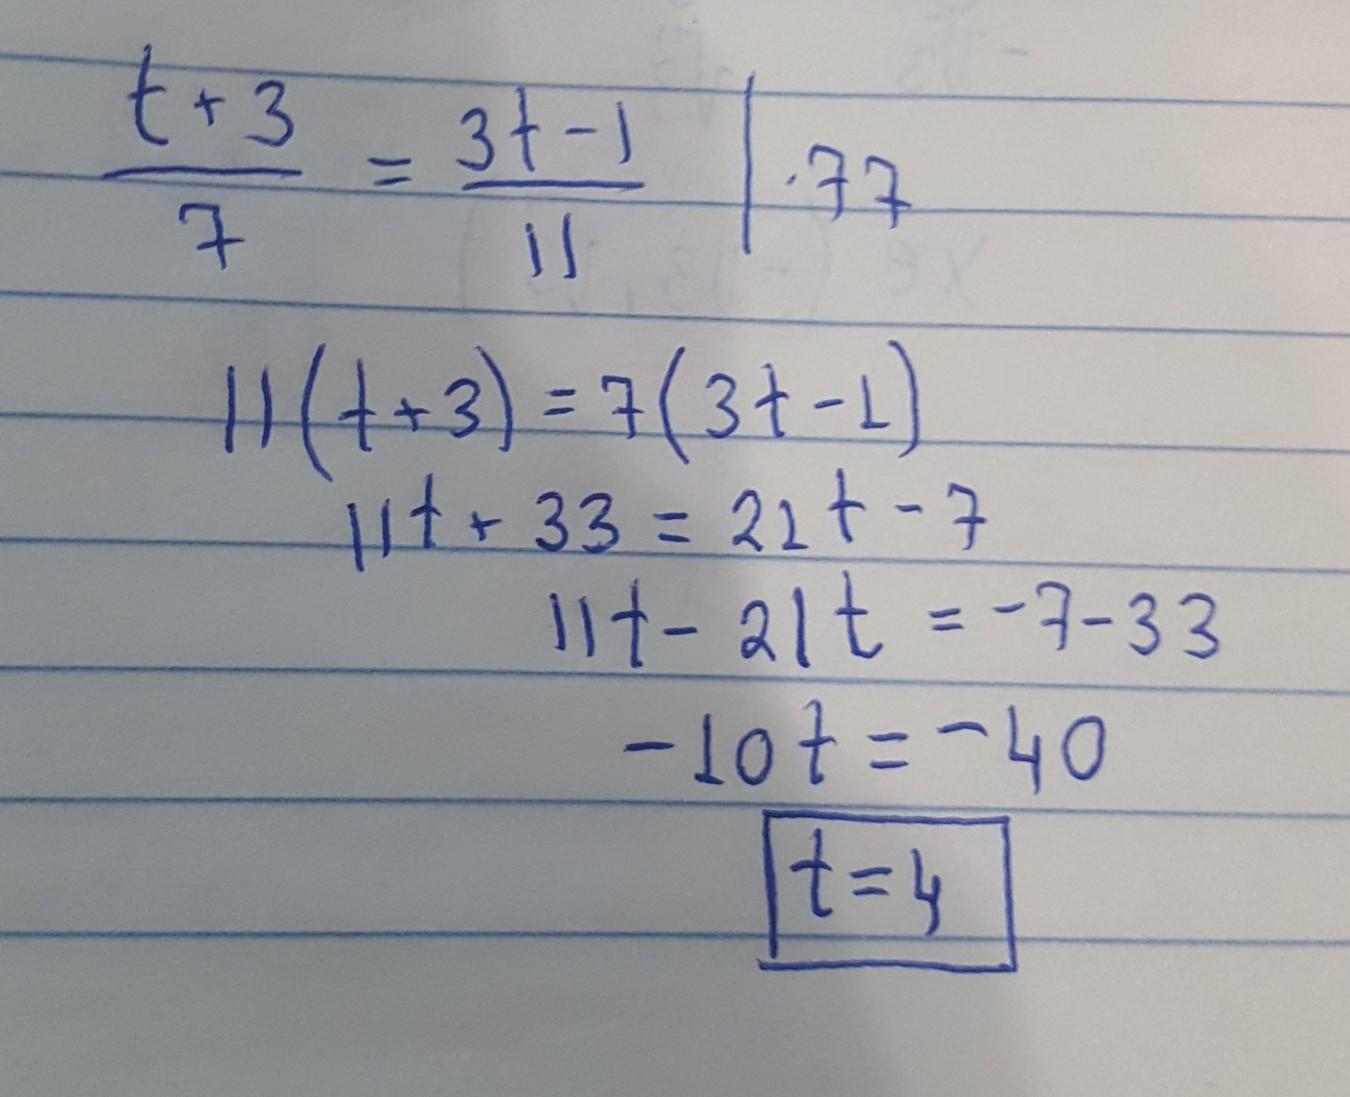 (t+3)/7 = (3t-1)/11 | ·77
11(t+3) = 7(3t-1)
11t + 33 = 21t - 7
11t - 21t = -7-33
-10t = -40
t=4